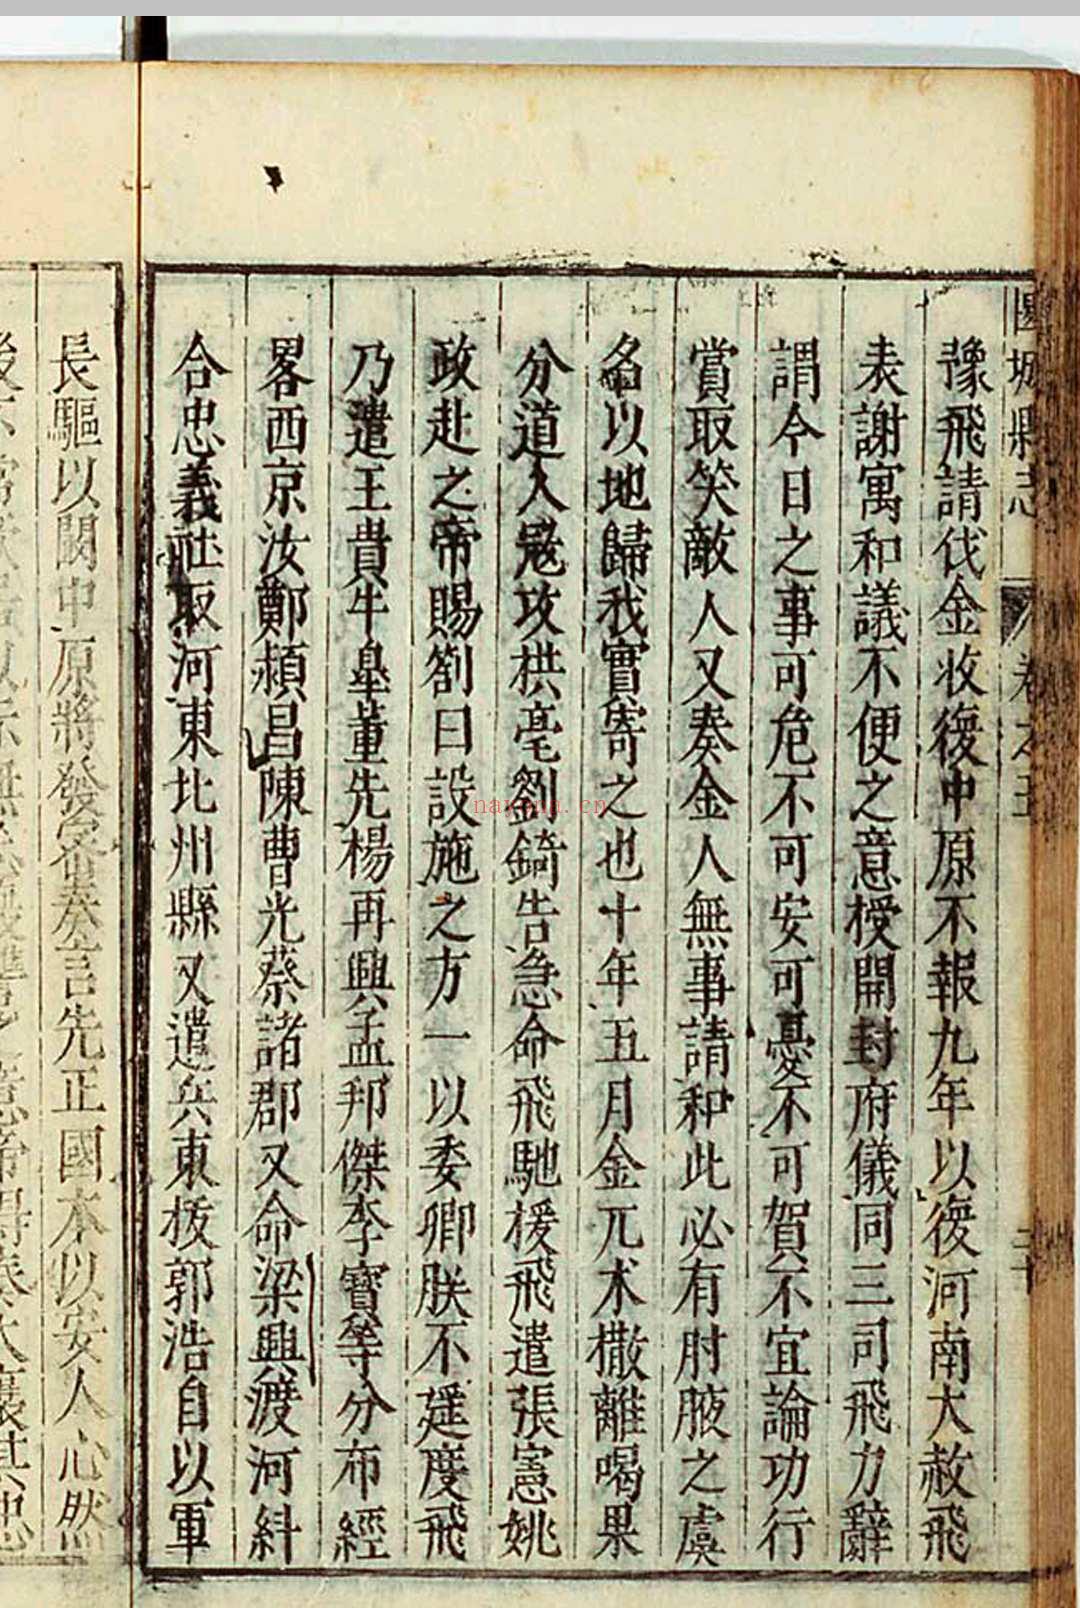 城縣志
卷之五
二十
豫飛請伐金收復中原不報九年以復河南大赦飛
表謝寓和議不便之意授開封府儀同三司飛力辭
謂今日之事可危不可安可憂不可賀不宜論功行
賞取笑敵人又奏金人無事請和此必有肘腋之虞
名以地歸我實寄之也十年五月金兀术撒離喝果
分道入寇攻拱亳劉錡告急命飛馳援飛遣張憲姚
政赴之帝賜劄曰設施之方一以委卿朕不遥度飛
乃遣王貴牛皐董先楊再興孟邦傑李寶等分布經
畧西京汝鄭潁昌陳曹光蔡諸郡又命梁興渡河糾
合忠義社取河東北州縣又遣兵東援郭浩自以軍
長驅以闞中原將發密奏言先正國本以安人心然
navona.cn